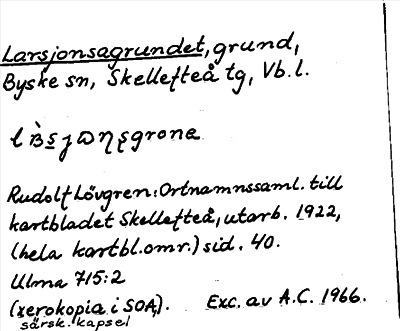 Larsjonsagrundet, grund,
Byske sn, Skellefteå tg, Vb.l.
Rudolf Lövgren: Ortnamnssaml. till
kartbladet Skellefteå, utarb. 1922,
(hela kartbl.omr.) sid. 40.
Ulma 715:2
(xerokopia i SOA). Exc. av A.C. 1966.
särsk. kapsel